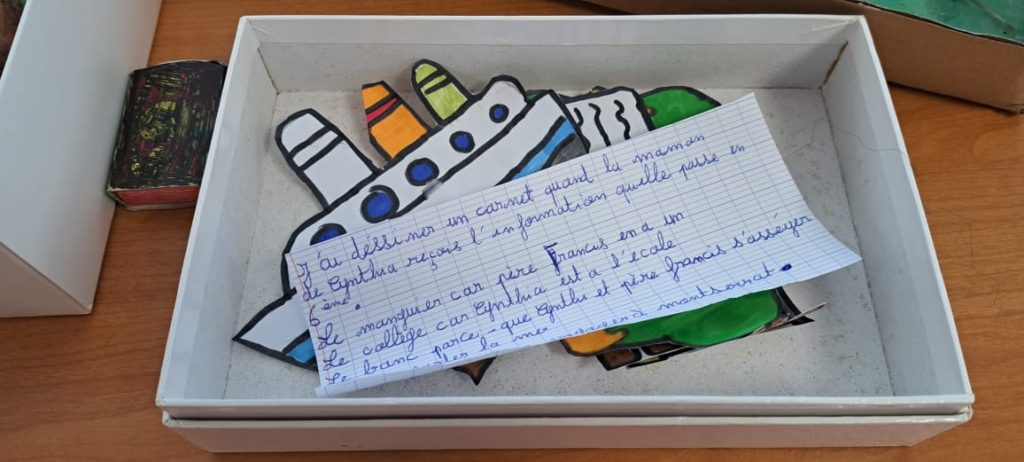 J'ai déssiner un carnet quand la maman
de Cynthia reçois l'information qu'elle passe en
6ème.
Le manguier car père Francis en a un
Le collège car Cynthia est a l'écale
Le banc parce-que Cynthia et père francis s'asséyer
la mer montsoirat.